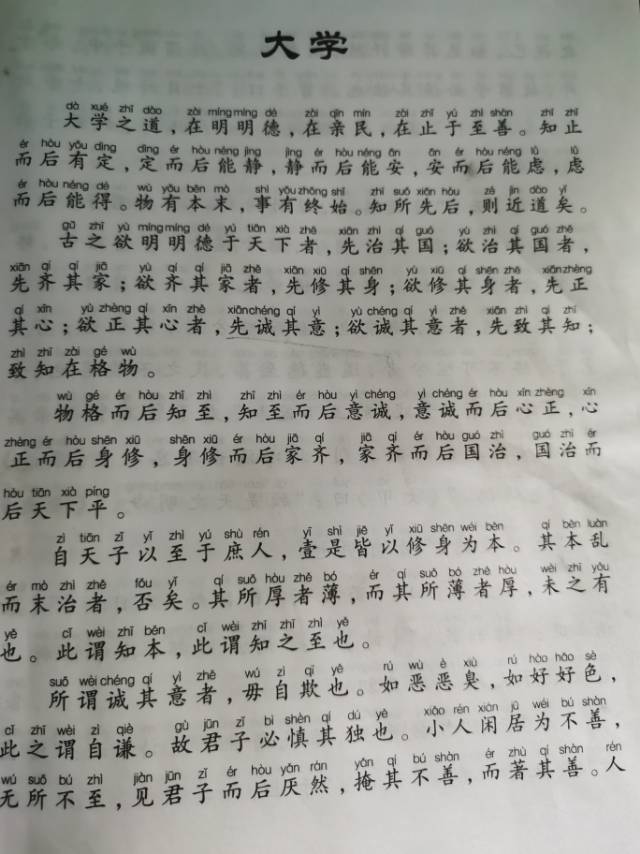 大学
dà xué zhī dào zài míng míng dé zài qīn mín zài zhǐ yú zhì shàn zhī zhǐ
大学之道，在明明德，在亲民，在止于至善。知止
ér hòu yǒu dìng dìng ér hòu néng jìng jìng ér hòu néng ān ān ér hòu néng lǜ lǜ
而后有定，定而后能静，静而后能安，安而后能虑，虑
ér hòu néng dé wù yǒu běn mò shì yǒu zhōng shǐ zhī suǒ xiān hòu zé jìn dào yǐ
而后能得。物有本末，事有终始。知所先后，则近道矣。
gǔ zhī yù míng míng dé yú tiān xià zhě xiān zhì qí guó yù zhì qí guó zhě
古之欲明明德于天下者，先治其国；欲治其国者，
xiān qí qí jiā yù qí qí jiā zhě xiān xiū qí shēn yù xiū qí shēn zhě xiān zhèng
先齐其家；欲齐其家者，先修其身；欲修其身者，先正
qí xīn yù zhèng qí xīn zhě xiān chéng qí yì yù chéng qí yì zhě xiān zhì qí zhī
其心；欲正其心者，先诚其意；欲诚其意者，先致其知；
zhì zhī zài gé wù
致知在格物。
wù gé ér hòu zhī zhì zhī zhì ér hòu yì chéng yì chéng ér hòu xīn zhèng xīn
物格而后知至，知至而后意诚，意诚而后心正，心
zhèng ér hòu shēn xiū shēn xiū ér hòu jiā qí jiā qí ér hòu guó zhì guó zhì ér
正而后身修，身修而后家齐，家齐而后国治，国治而
hòu tiān xià píng
后天下平。
zì tiān zǐ yǐ zhì yú shù rén yī shì jiē yǐ xiū shēn wéi běn qí běn luàn
自天子以至于庶人，壹是皆以修身为本。其本乱
ér mò zhì zhě fǒu yǐ qí suǒ hòu zhě bó ér qí suǒ bó zhě hòu wèi zhī yǒu
而末治者，否矣。其所厚者薄，而其所薄者厚，未之有
yě cǐ wèi zhī běn cǐ wèi zhī zhī zhì yě
也。此谓知本，此谓知之至也。
suǒ wèi chéng qí yì zhě wú zì qī yě rú wù è xiù rú hào hǎo sè
所谓诚其意者，毋自欺也。如恶恶臭，如好好色，
cǐ zhī wèi zì qiè gù jūn zǐ bì shèn qí dú yě xiǎo rén xián jū wéi bú shàn
此之谓自谦。故君子必慎其独也。小人闲居为不善，
wú suǒ bú zhì jiàn jūn zǐ ér hòu yǎn rán yǎn qí bú shàn ér zhù qí shàn rén
无所不至，见君子而后厌然，掩其不善，而著其善。人